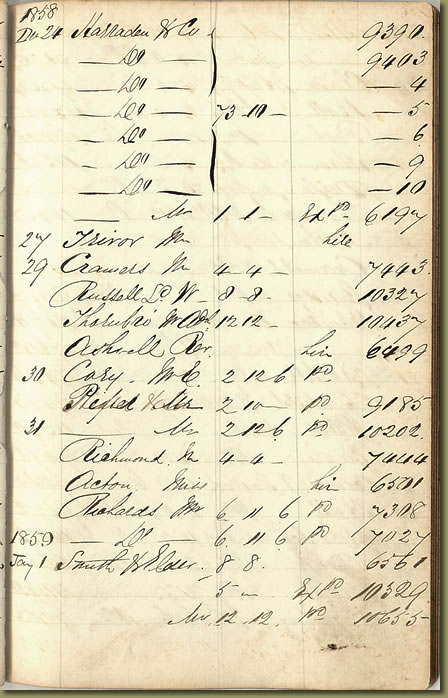 1858
Dec 24 Harraden & Co 9390
— Do — 9403
— Do — — 4
— Do — 73 - 10 - — 5
— Do — — 6
— Do — — 9
— Do — — 10
— Mr 1 - 1 - Ex Pd 6197
27 Trivor Mr hire
29 Cramers Mr 4 - 4 - 7443
Russell Ld W - 8 - 8 - 10327
12 12 - 10437
Ashwell Rev. hire 6499
30 Cary 2 12 6 Pd
2 10 - Pd 9185
31 — Mr 2 12 6 Pd 10202
Richmond 4 - 4 - 7444
Acton Miss hire 6501
Richards Mr 6 11 6 Pd 7308
1859 — Do — 6 11 6 Pd 7027
Jay 1 Smith & Elder 8 8 6561
5 — Ex Pd 10329
Mr 12 . 12 . Pd 10655